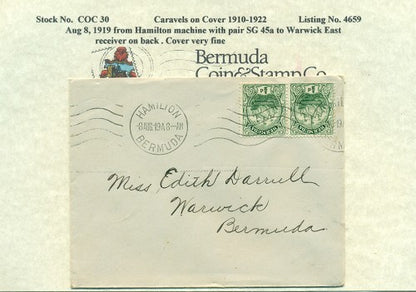 Stock No. COC 30 Caravels on Cover 1910-1922 Listing No. 4659
Aug 8, 1919 from Hamilton machine with pair SG 45a to Warwick East
receiver on back . Cover very fine
Bermuda
Coin & Stamp Co.
HAMILTON
8 AUG 19 A 8 - AM
BERMUDA
Miss Edith Darrell
Warwick
Bermuda.